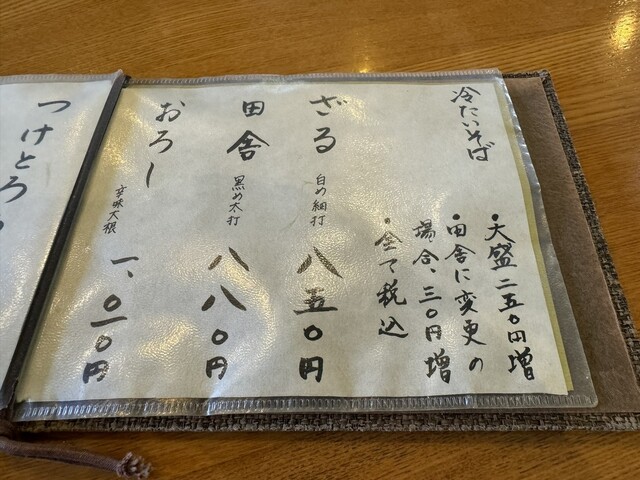 冷たいそば
・大盛二五〇円増
・田舎に変更の
場合、三〇円増
・全て税込
ざる 白め細打 八五〇円
田舎 黒め太打 八八〇円
おろし 辛味大根 一、〇一〇円
つけとろ